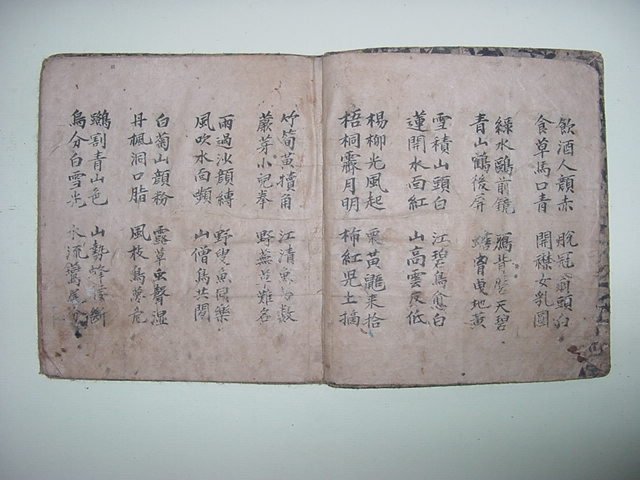 飮酒人顔赤 脫冠翁頭白
食草馬口靑 開襟女乳圓
綠水鷗前鏡 天碧
靑山鶴後屛 地黃
雪積山頭白 江碧鳥愈白
蓮開水面紅 山高雲反低
楊柳光風起 栗黃鼯來拾
梧桐霽月明 柿紅兒上摘
竹筍黃犢角 江淸魚數
蕨芽小兒拳 野難名
雨過沙顔縛 野叟魚同樂
風吹水面 山僧鳥共閒
白菊山顔粉 露草虫聲濕
丹楓洞口脂 風枝鳥夢危
割靑山色 山勢蜂腰斷
分白雪光 水流鷰尾